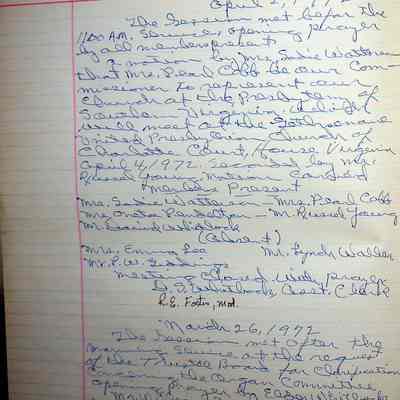 April 2, 1972
The Session met before the
11:00 A.M. Service, opening prayer
by all members present.
A motion by Mrs. Sadie Watterson
that Mrs. Pearl Cobb be our Com-
missioner to represent our
Church at the Presbytery of
Southern Virginia which
will meet at the
United Presbyterian Church of
Charlotte Court House Virginia
April 4, 1972. Seconded by Mr.
Russel Young. Motion Carried
Members Present
Mrs. Sadie Watterson - Mrs. Pearl Cobb
Mrs. Pendelton - Mr. Russel Young
Mr.
(Absent)
Mrs. Emma Lee Mr. Lynch Waller
Mr. P. W. Giddings
Meeting closed with prayer
Asst. Clerk
R. E. Foster, mod.
March 26, 1972
The Session met after the
morning service at the request
of the Trustee Board for clarification
concerning the Organ Committee,
opening prayer by Elder